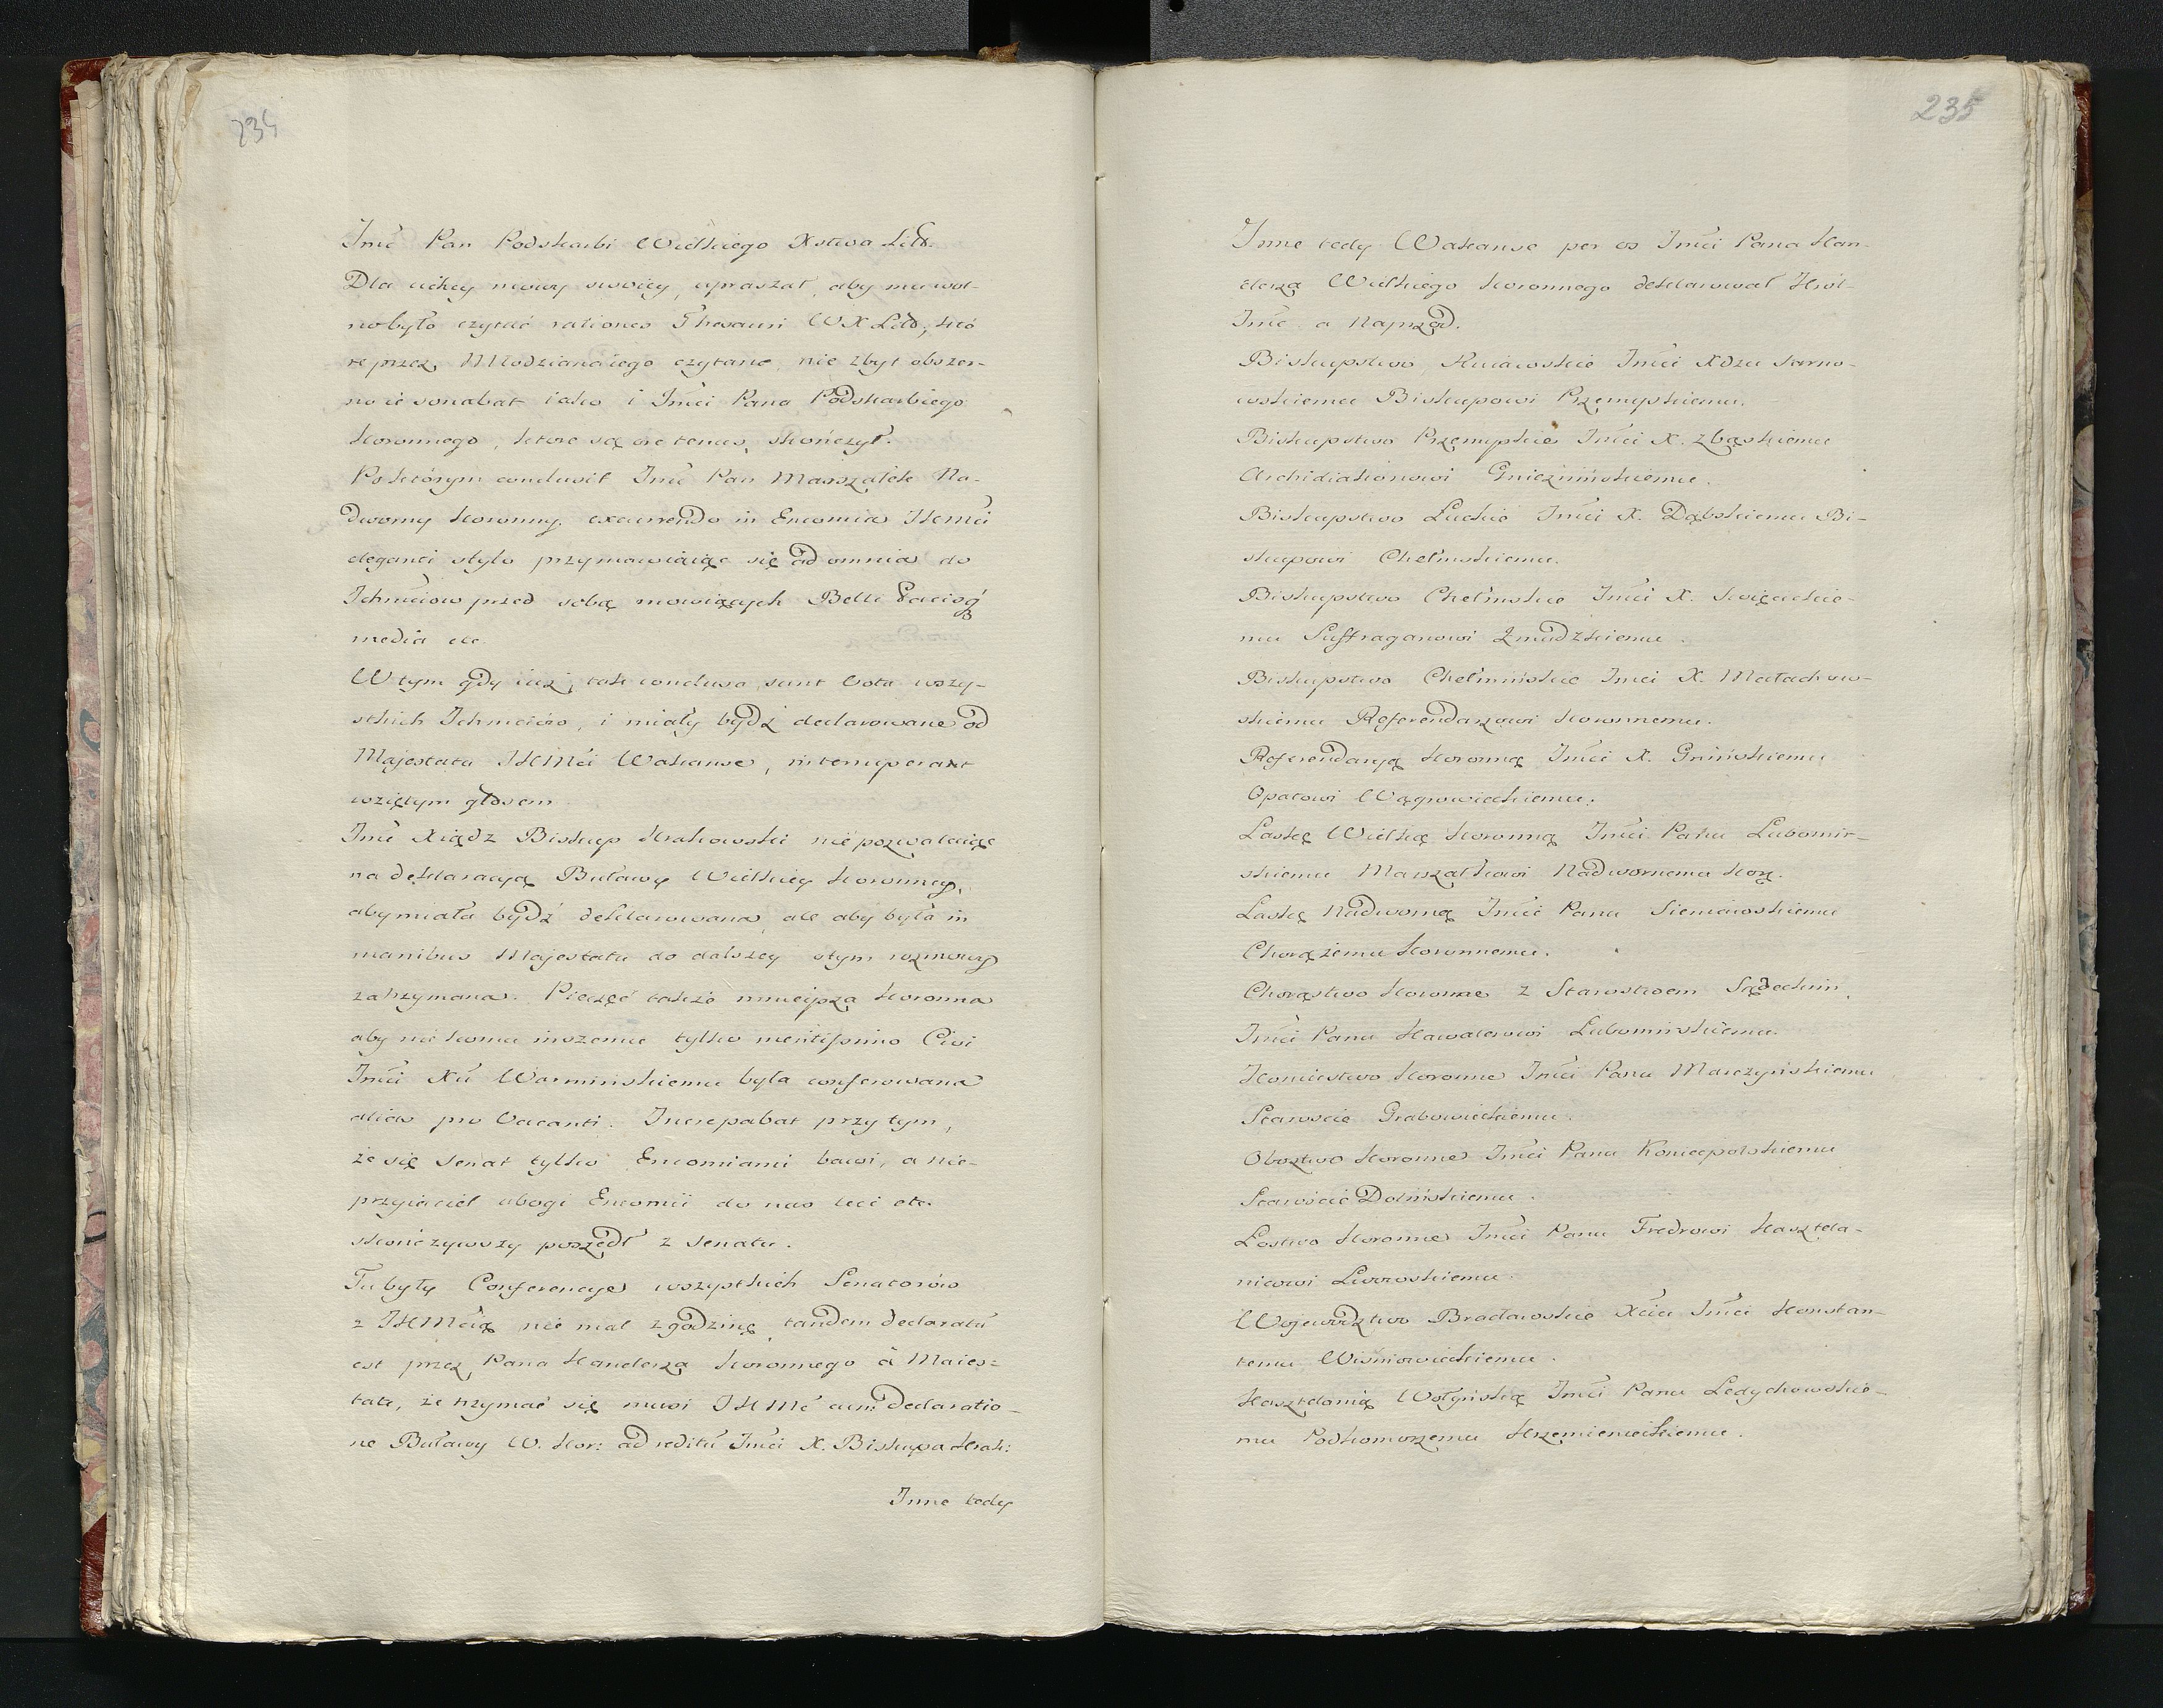 234
Jmć Pan Podskarbi Wielkiego Xstwa Litt:
Dla cichey mowy swoiey, upraszał, aby mu wol-
no było czytać rationes Thesauri W X Litt, któ
re przez Młodzianaiego czytane, nie zbyt obszer-
no ie sonabat iako i Jmći Pana Podskarbiego
Koronnego, ktore są ore tenus, skończył.
Po którym conclusit Jmć Pan Marszałek Na-
dworny Koronny, excurrendo in Encomia JKMći
eleganti stylo przymawiaiąc się ad omnia do
Ichmćiow przed sobą mowiących Belli Pacisq
media etc.
W tym gdy iuż, tak conclusa sunt Vota wszy-
stkich Ichmćiów, i miały bydź declarowane od
Majestatu JKMći Wakanse, interuperant
wziętym głosem
Jmć Xiądz Biskup Krakowski nie pozwalaiąc
na deklaracyą Buławy Wielkiey Koronney,
aby miała bydź deklarowana, ale aby była in
manibus Majestatu do dalszey o tym rozmowy
zatrzymana. Pieczęć także mnieysza Koronna
aby nie komu inszemu tylko meritissimo Civi
Jmći Xu Warminskiemu była conferowana
alias pro Vacanti. Increpabat przy tym,
że się Senat tylko Encomiami bawi, a nie-
przyiaciel ubogi Encomii do nas leci etc.
skończywszy poszedł z Senatu.
Tu były Conferencye wszystkich Senatorów
z JKMćią nie mal z godzinę, tandem declaratū
est przez Pana Kanclerza Koronnego à Maies-
tate, że trzymać się musi JKMć cum Declaratio-
ne Buławy W. Kor: ad reditū Jmći X. Biskupa Krak:
Inne tedy
235
Inne tedy Wakanse per os Jmći Pana Kan-
clerza Wielkiego Koronnego deklarował Król
Jmć a Naprzod.
Biskupstwo Kuiawskie Jmći Xdzu Sarno-
wskiemu Biskupowi Przemyskiemu.
Biskupstwo Przemyskie Jmći X. Zbąskiemu
Archidiakonowi Gnieznińskiemu.
Biskupstwo Luckie Jmći X. Dąbskiemu Bi-
skupowi Chełmskiemu.
Biskupstwo Chełmskie Jmći X. Swięcickie-
mu Suffraganowi Zmudzkiemu.
Biskupstwo Chełmińskie Jmći X. Małachow-
skiemu Referendarzowi Koronnemu.
Referendaryą Koronną Jmći X. Gnińskiemu
Opatowi Wągrowieckiemu.
Laskę Wielką Koronną Jmći Panu Lubomir-
skiemu Marszałkowi Nadwornemu Korr.
Laskę Nadworną Jmći Panu Sieniawskiemu
Chorążemu Koronnemu.
Chorąstwo Koronne z Starostwem Sądeckim,
Jmći Panu Kawalerowi Lubomirskiemu.
Koniestwo Koronne Jmći Panu Marczyńskiemu
Staroscie Grabowieckiemu.
Obozstwo Koronne Jmći Panu Koniecpolskiemu
Staroście Dolińskiemu.
Lostwo Koronne Jmći Panu Fredrowi Kasztela-
nicowi Lwowskiemu.
Wojewodztwo Bracławskie Xciu Jmći Konstan-
temu Wiśniowieckiemu.
Kasztelanią Wołyńską Jmći Panu Ledychowskie-
mu Podkomorzemu Krzemienieckiemu.